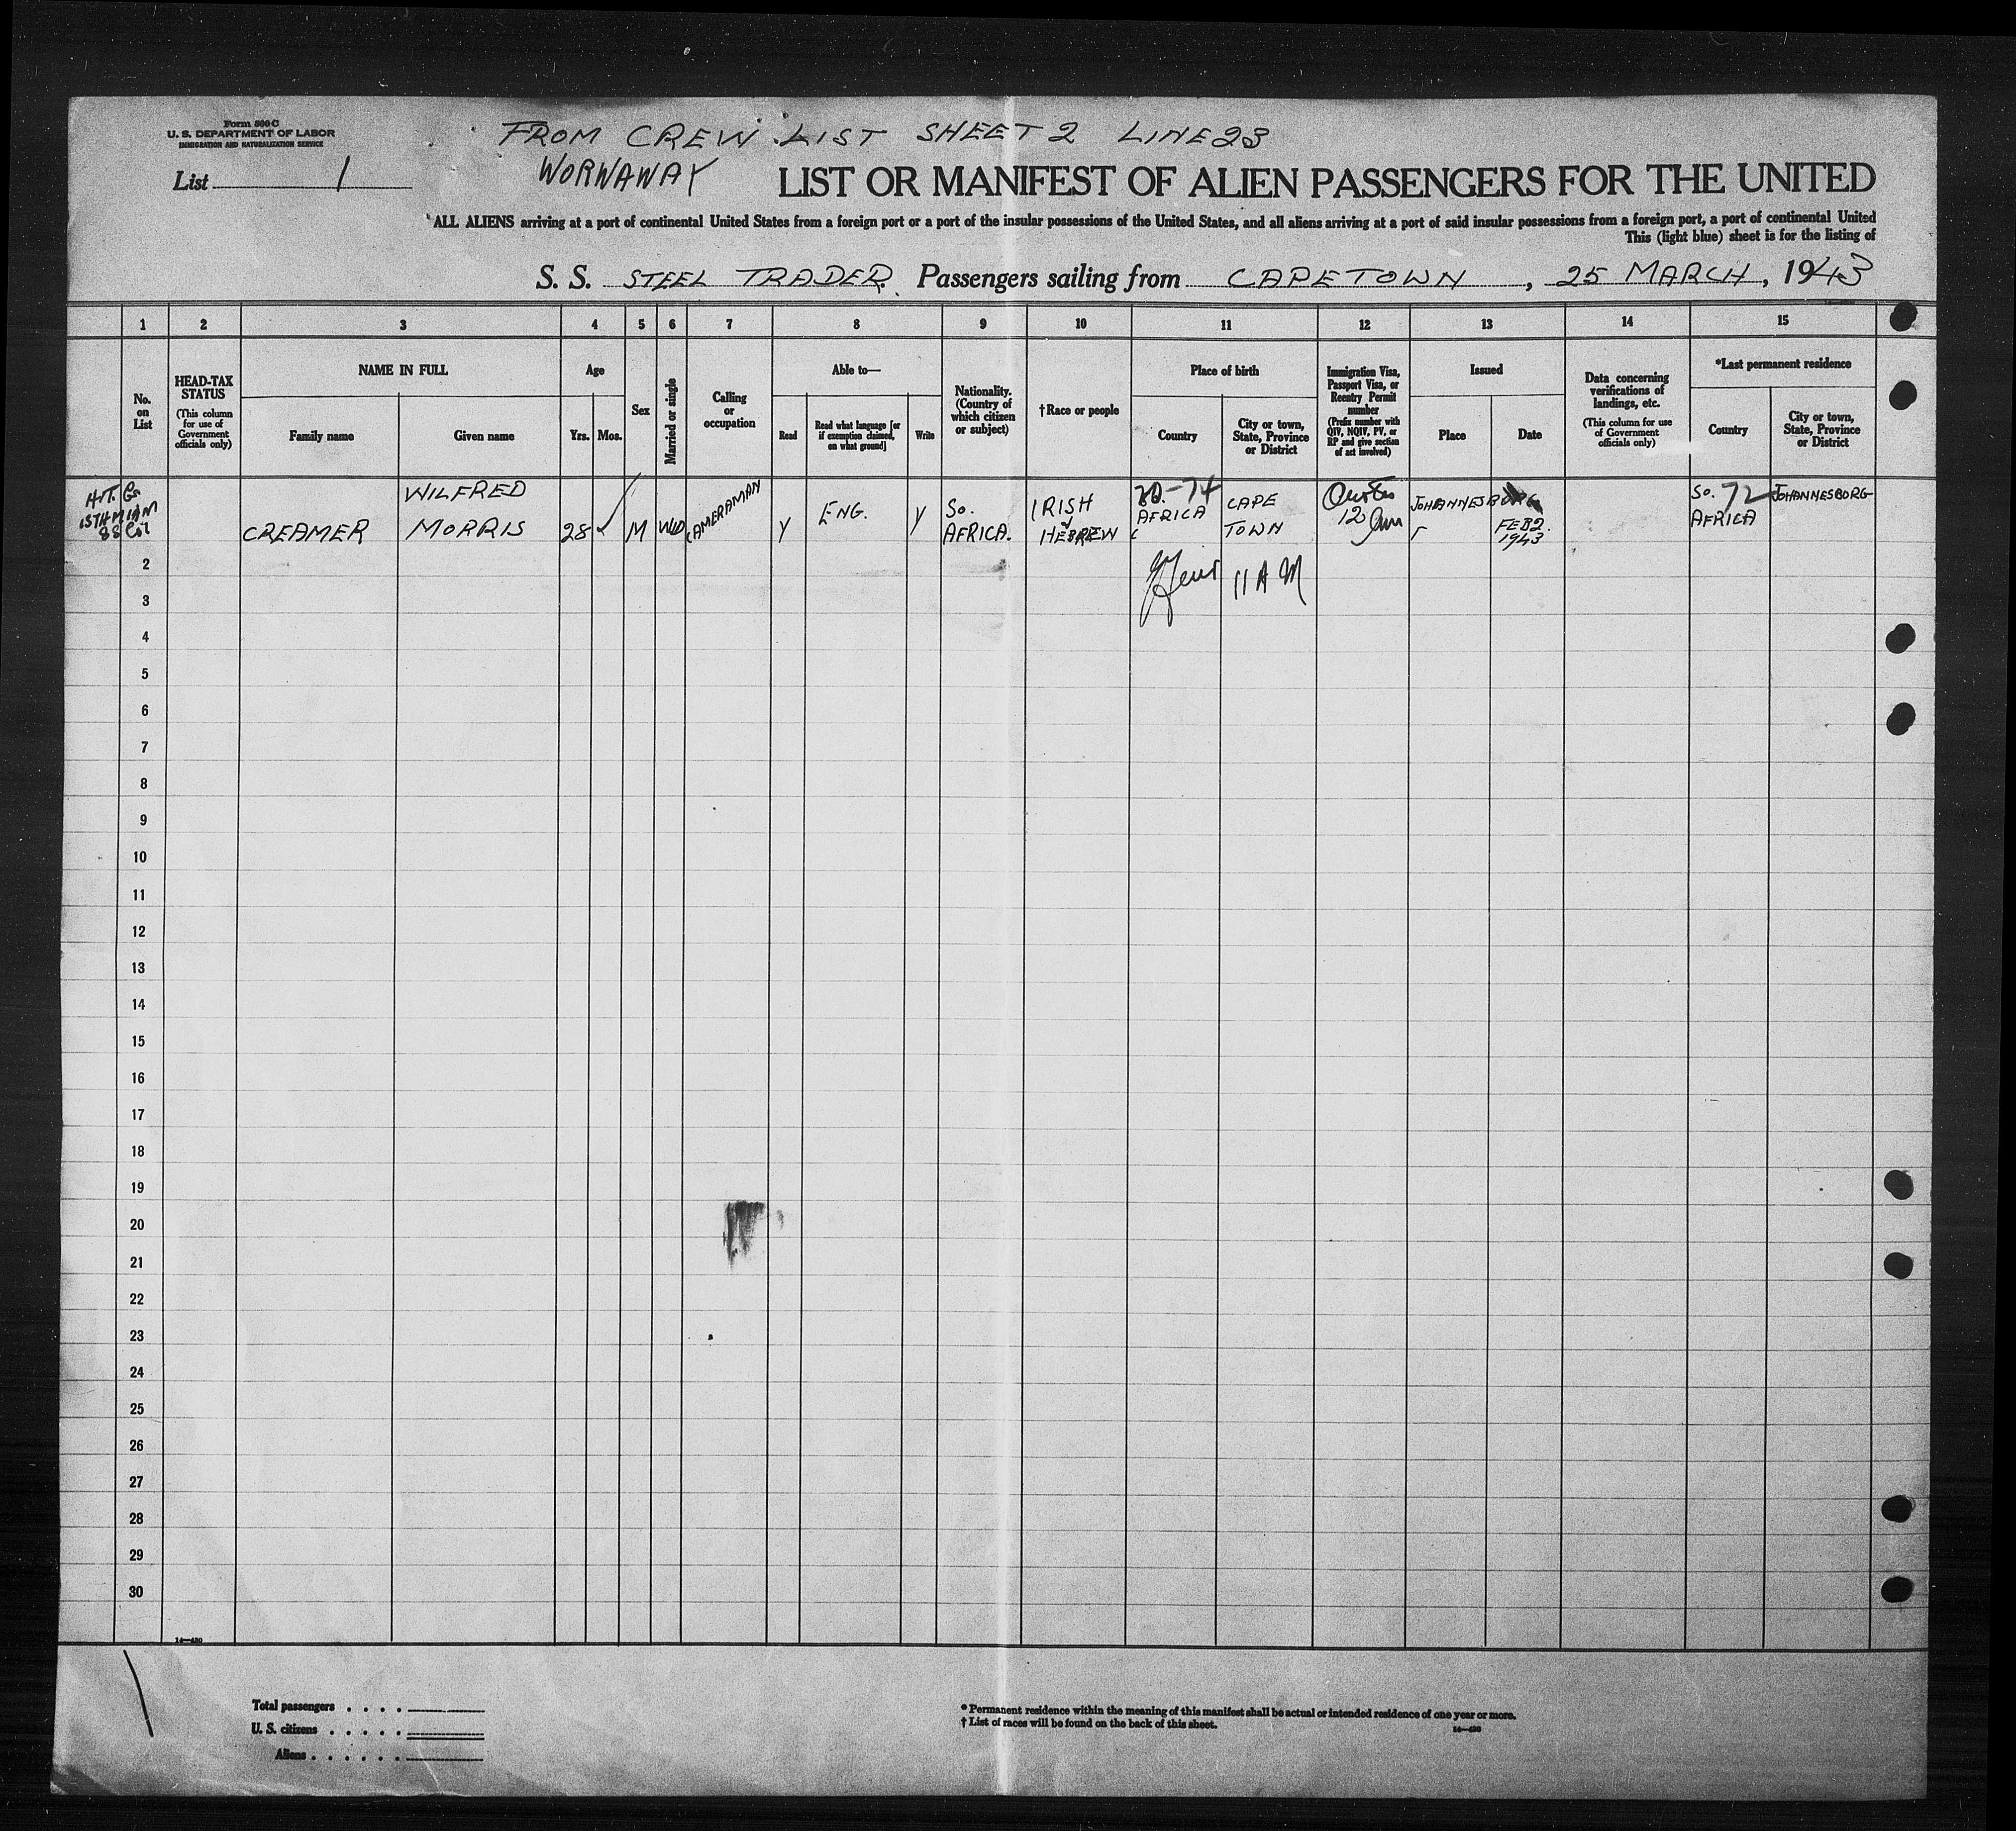 Form 500 C
U. S. DEPARTMENT OF LABOR
IMMIGRATION AND NATURALIZATION SERVICE
FROM CREW LIST SHEET 2 LINE 23
List 1
WORKAWAY
LIST OR MANIFEST OF ALIEN PASSENGERS FOR THE UNITED
ALL ALIENS arriving at a port of continental United States from a foreign port or a port of the insular possessions of the United States, and all aliens arriving at a port of said insular possessions from a foreign port, a port of continental United
This (light blue) sheet is for the listing of
S. S. STEEL TRADER. Passengers sailing from CAPETOWN, 25 MARCH, 1943
1 2 3 4 5 6 7 8 9 10 11 12 13 14 15
No. on List
HEAD-TAX STATUS
(This column for use of Government officials only)
NAME IN FULL
Family name
Given name
Age
Yrs.
Mos.
Sex
Married or single
Calling or occupation
Able to—
Read
Read what language [or if exemption claimed, on what ground]
Write
Nationality. (Country of which citizen or subject)
†Race or people
Place of birth
Country
City or town, State, Province or District
Immigration Visa, Passport Visa, or Reentry Permit number
(Prefix number with QIV, NQIV, PV, or RP and give section of act involved)
Issued
Place
Date
Data concerning verifications of landings, etc.
(This column for use of Government officials only)
*Last permanent residence
Country
City or town, State, Province or District
H.T. Gs
ISTHMIAN
SS Co.
CREAMER
WILFRED
MORRIS
28
M
WD
CAMERAMAN
Y
ENG.
Y
SO.
AFRICA.
IRISH
HEBREW
AFRICA
CAPE
TOWN
12
JOHANNESBURG
FEB 2.
1943
SO. 72
AFRICA
JOHANNESBORG
11 AM
2
3
4
5
6
7
8
9
10
11
12
13
14
15
16
17
18
19
20
21
22
23
24
25
26
27
28
29
30
14—430
Total passengers . . . .
U. S. citizens . . . . .
Aliens . . . . . .
* Permanent residence within the meaning of this manifest shall be actual or intended residence of one year or more.
† List of races will be found on the back of this sheet.
14—430